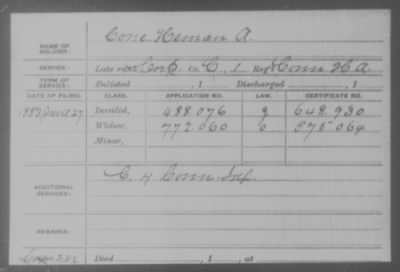 NAME OF SOLDIER: Cone Heman A.
SERVICE: Late rank, Corp, Co. C, 1 Reg't Conn H A.
TERM OF SERVICE: Enlisted , 1 Discharged , 1
DATE OF FILING. CLASS. APPLICATION NO. LAW. CERTIFICATE NO.
1883 27 Invalid, 488.076 g 648.930
Widow, 772.060 575.064
Minor,
ADDITIONAL SERVICES: C, H Conn Inf.
REMARKS:
Died , 1 , at